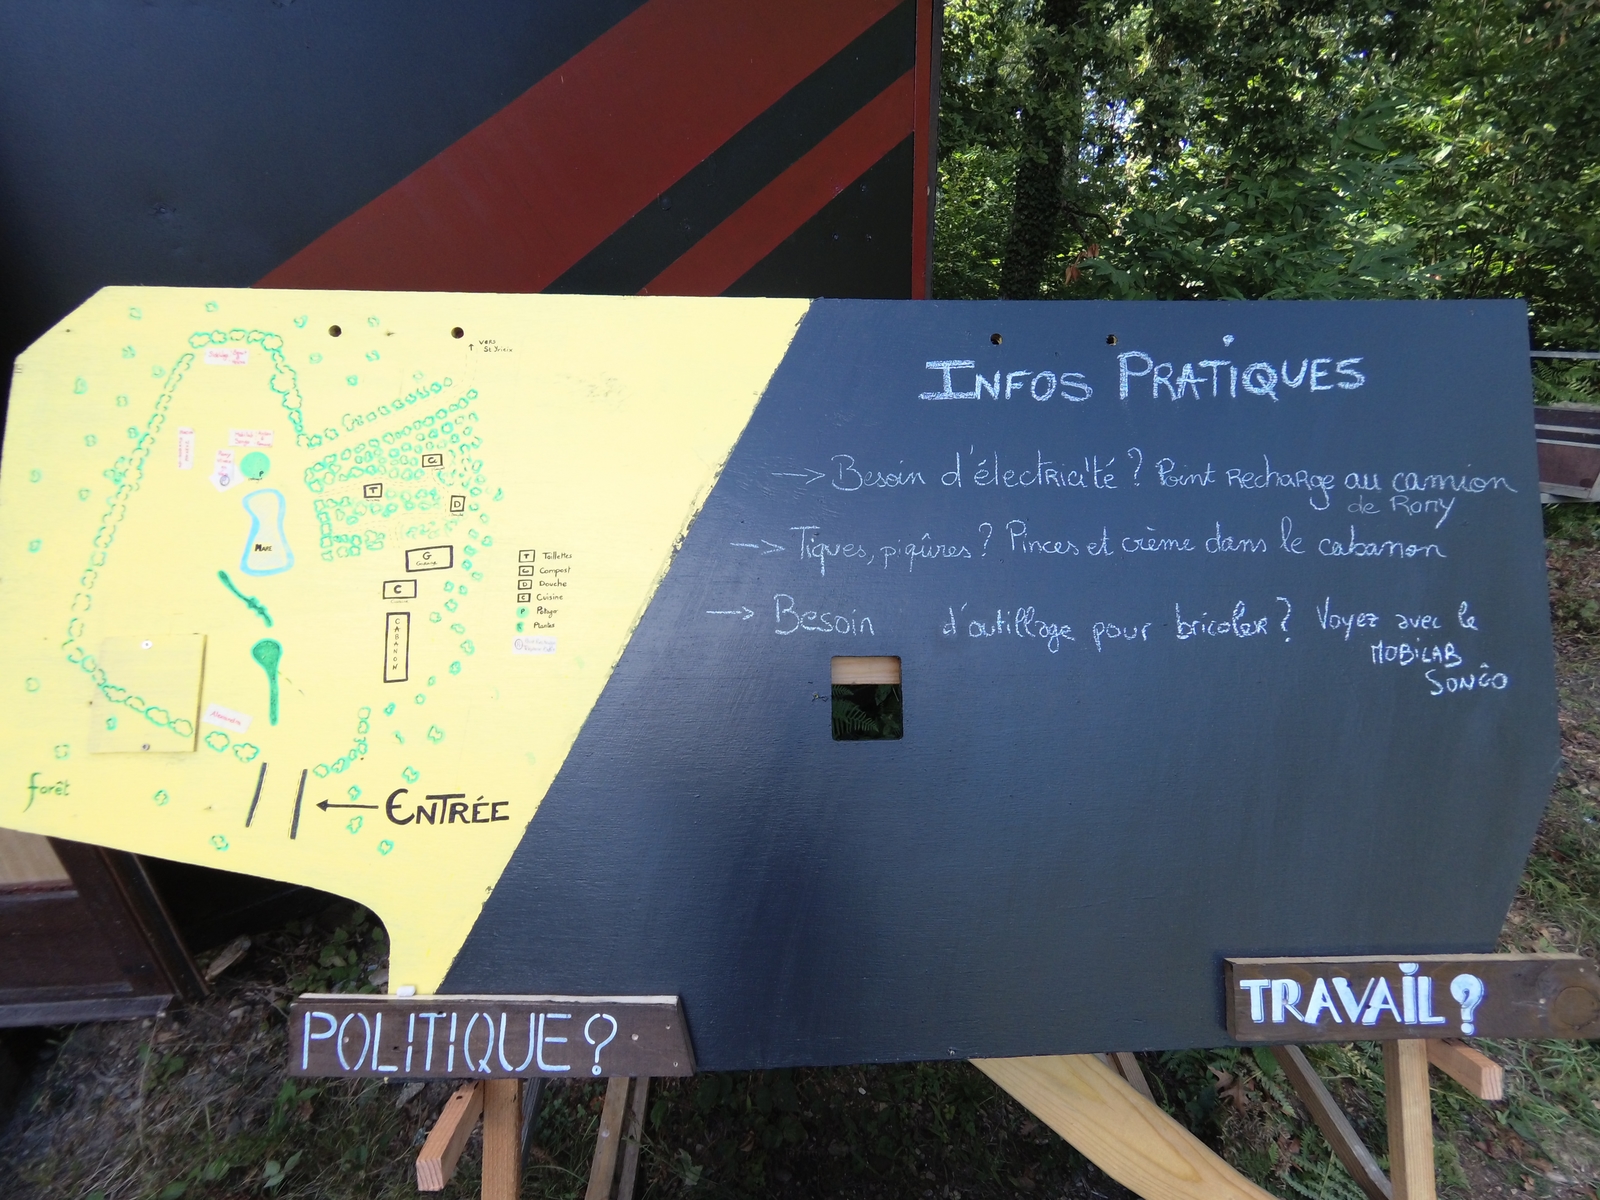 vers
St Yrieix
MARE
P
G
T
D
G
C
CABANON
T Toilettes
G Compost
D Douche
C Cuisine
P Potager
Plantes
forêt
ENTRÉE
INFOS PRATIQUES
Besoin d'électricité ? Point Recharge au camion
de Romy
Tiques, piqûres ? Pinces et crème dans le cabanon
Besoin d'outillage pour bricoler ? Voyez avec le
MOBILAB
SONGO
POLITIQUE ?
TRAVAIL ?